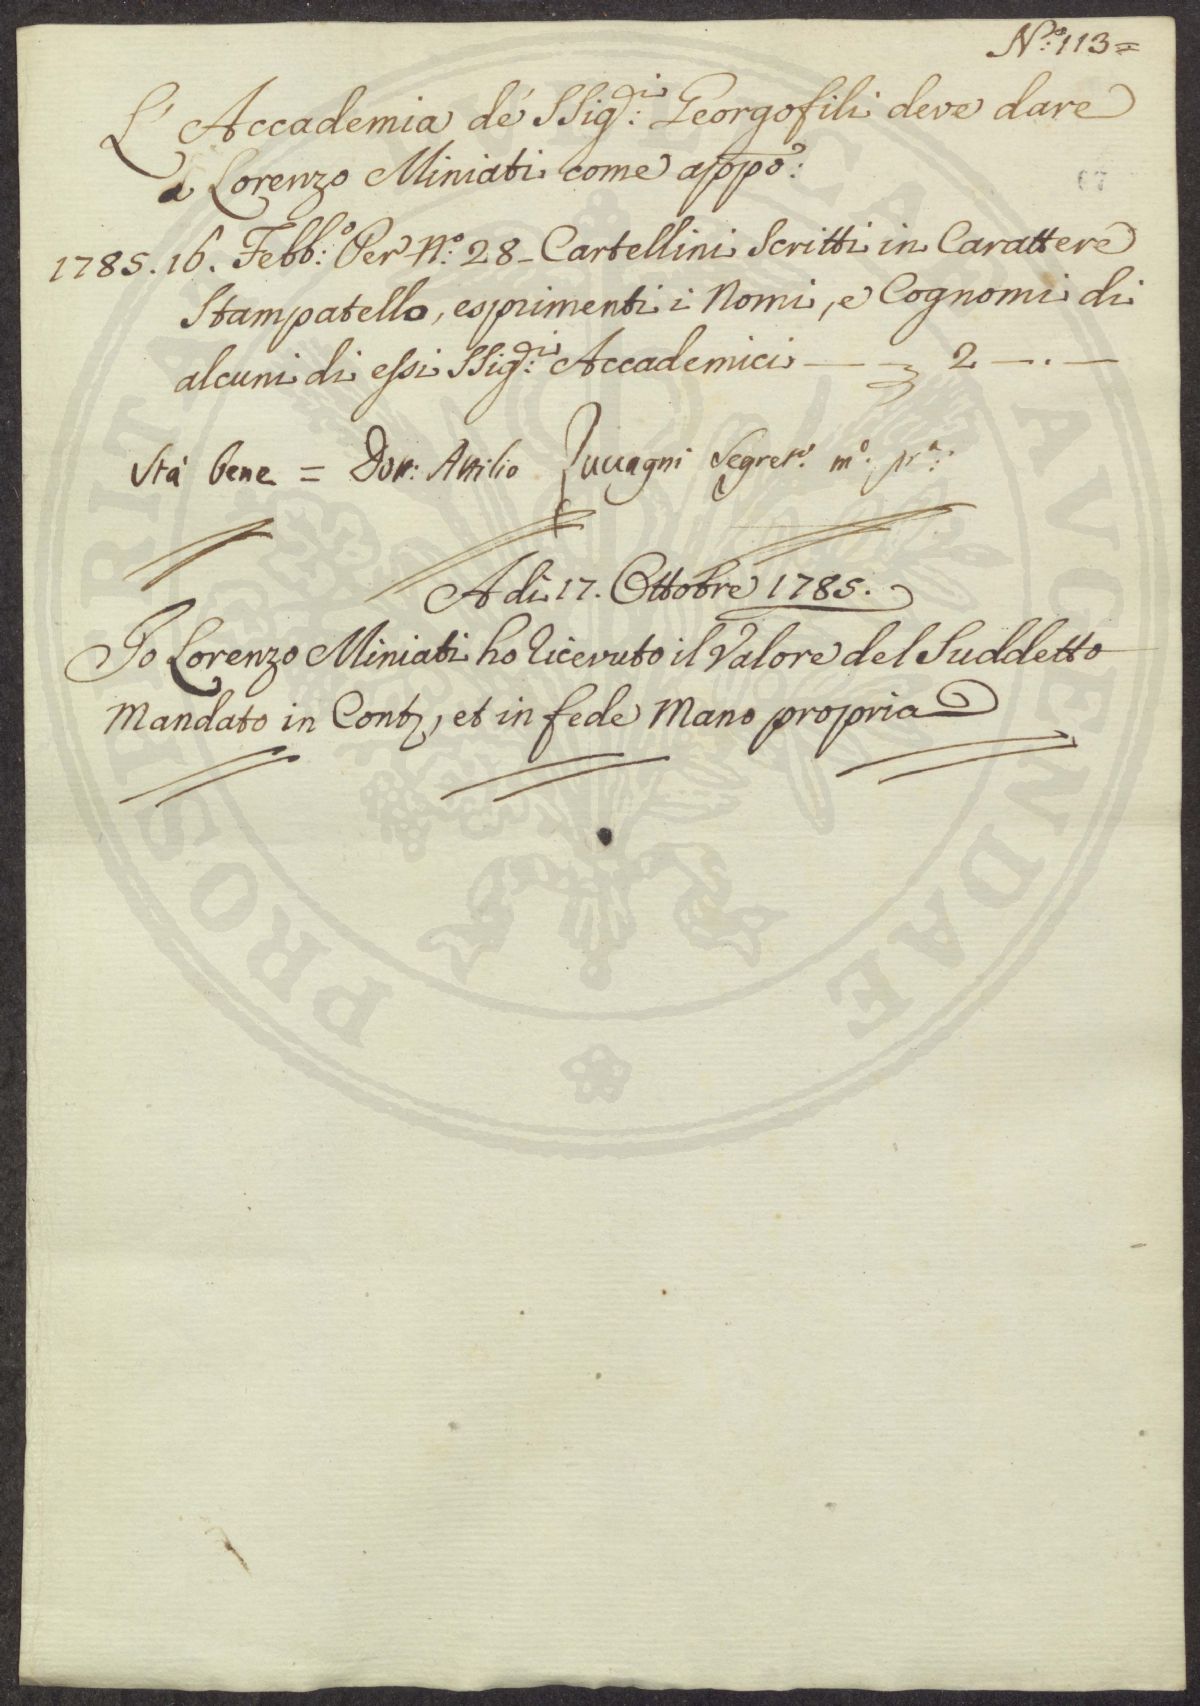 N.º 113 =
L'Accademia de' SSig.ri Georgofili deve dare
a Lorenzo Miniati come app.o:
67
1785. 16. Febb:o Per N.º 28 - Cartellini Scritti in Carattere
Stampatello, esprimenti i Nomi, e Cognomi di
alcuni di essi SSig.ri Accademici — 2 — . —
Stà bene = Dott: Attilio Zuccagni Segret.o m.o pr.a
A dì 17. Ottobre 1785.
Io Lorenzo Miniati ho ricevuto il Valore del Suddetto
Mandato in Conti, et in fede Mano propria
PROSPERITATI PUBLICAE AUGENDAE